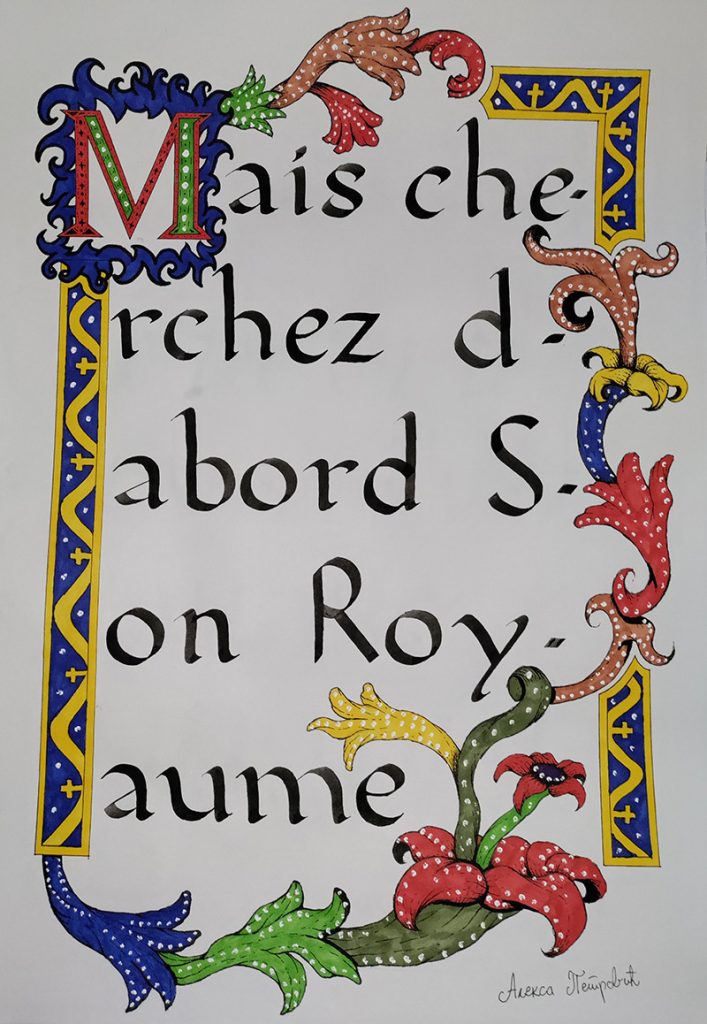 Mais che-
rchez d-
abord S-
on Roy-
aume
Алекса Петровић